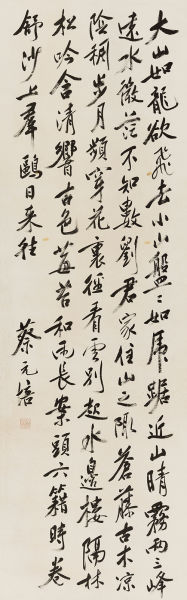 大山如龍欲飛去小山盤〻如虎踞近山晴霧兩三峰
遠水微茫不知數劉君家住山之陬蒼藤古木涼
陰稠步月頻穿花裏徑看雲別起水邊樓隔林
松吟含清響古色莓苔和雨長案頭六籍時卷
舒沙上羣鷗日來往
蔡元培